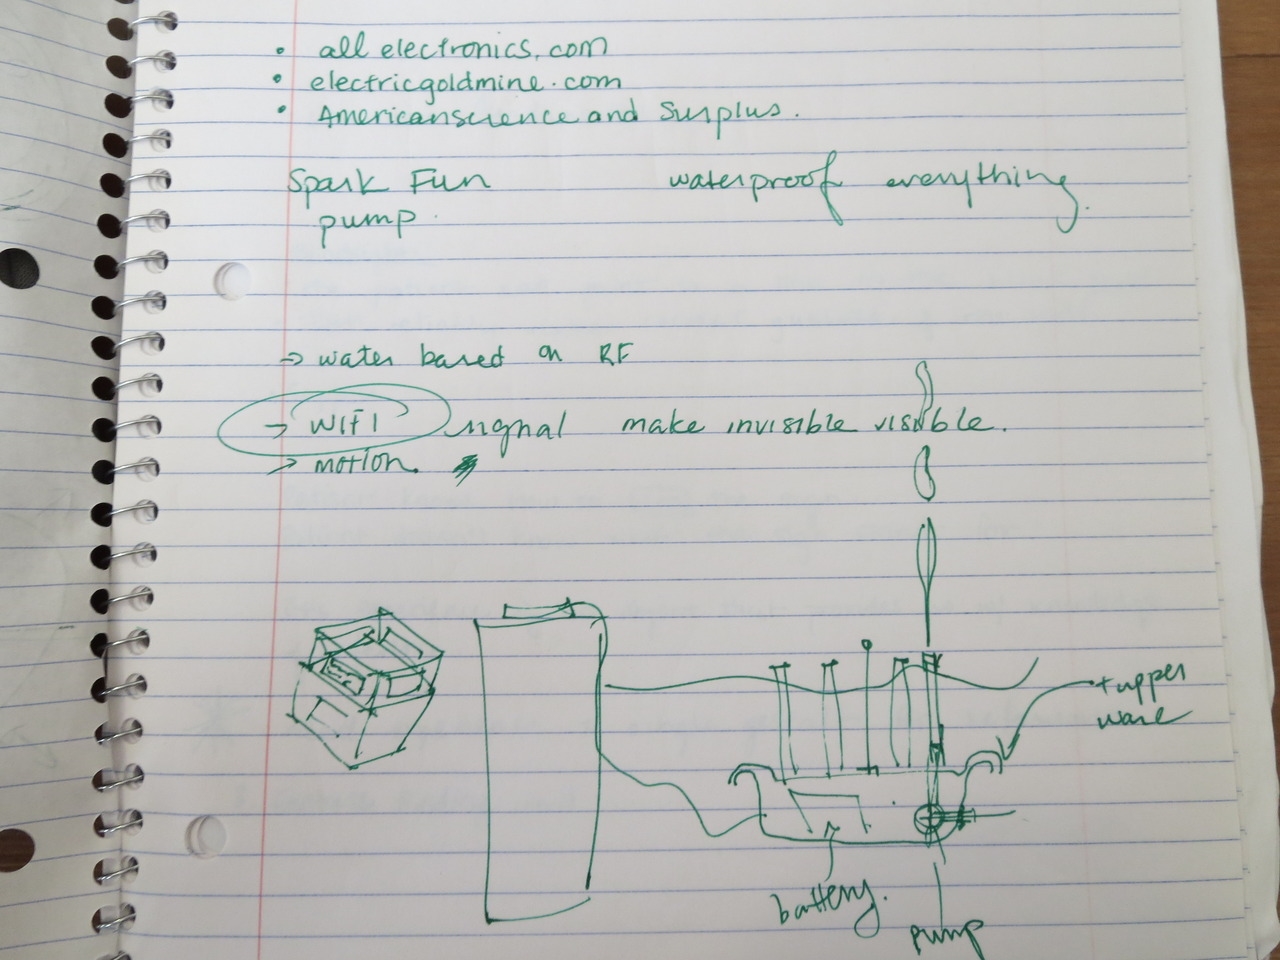 • all electronics.com
• electricgoldmine.com
• Americanscience and Surplus.
Spark Fun
pump.
waterproof everything.
→ water based on RF
→ WIFI signal make invisible visible.
→ motion.
tupper
ware
battery.
pump